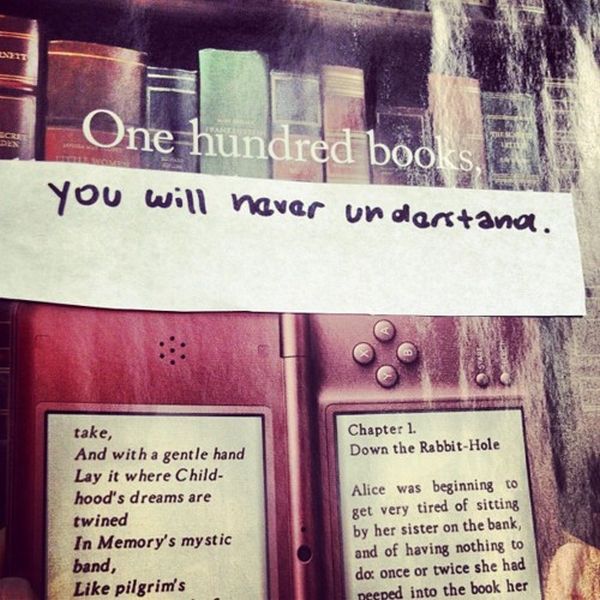 One hundred books,
you will never understand.
LITTLE WOMEN
FRANKENSTEIN
THE SCARLET
LETTER
take,
And with a gentle hand
Lay it where Child-
hood's dreams are
twined
In Memory's mystic
band,
Like pilgrim's
X
Y
A
B
Chapter 1.
Down the Rabbit-Hole
Alice was beginning to
get very tired of sitting
by her sister on the bank,
and of having nothing to
do: once or twice she had
peeped into the book her